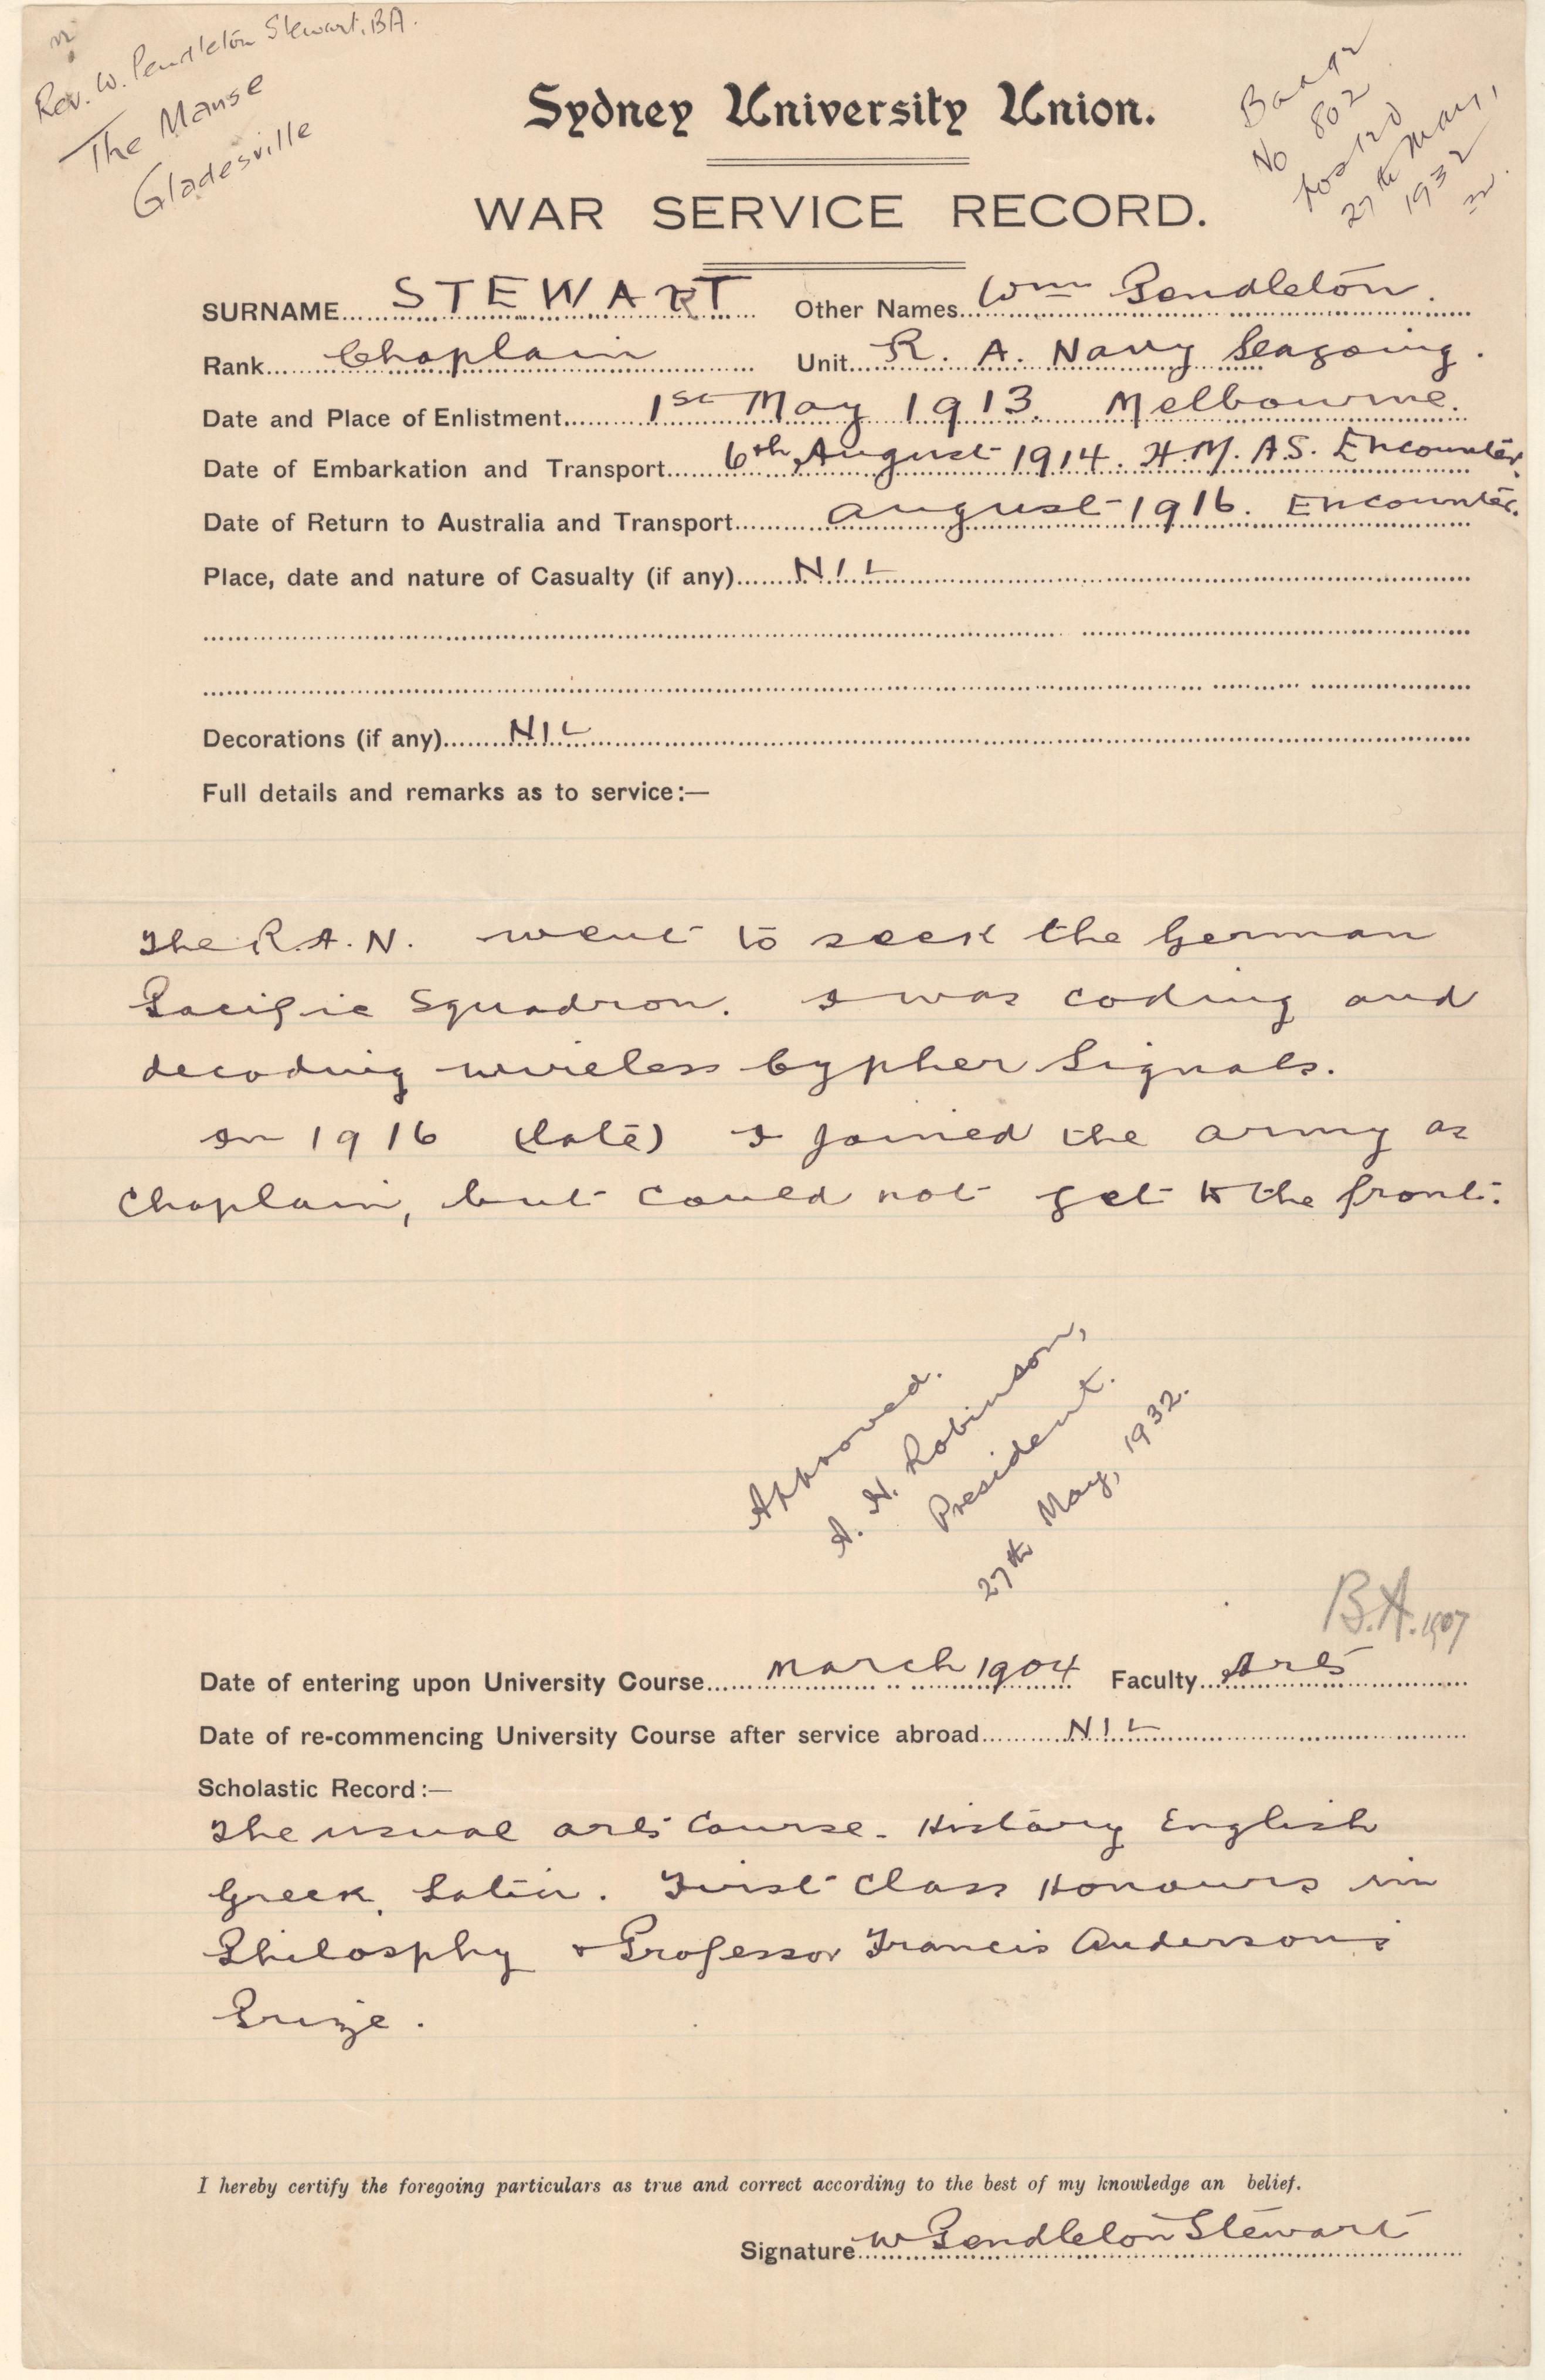 Rev. W. Pendleton Stewart, BA.
The Manse
Gladesville
Badge
No 802
posted
27th May,
1932
Sydney University Union.
WAR SERVICE RECORD.
SURNAME STEWART Other Names Wm Pendleton.
Rank Chaplain Unit R. A. Navy Seagoing.
Date and Place of Enlistment 1st May 1913. Melbourne.
Date of Embarkation and Transport 6th August 1914. H.M.A.S. Encounter.
Date of Return to Australia and Transport August 1916. Encounter.
Place, date and nature of Casualty (if any) NIL
Decorations (if any) NIL
Full details and remarks as to service:—
The R.A.N. went to seek the German
Pacific Squadron. I was coding and
decoding wireless cypher signals.
In 1916 (late) I joined the army as
Chaplain, but could not get to the front.
Approved.
A. H. Robinson,
President.
27th May, 1932.
B.A. 1907
Date of entering upon University Course March 1904 Faculty Arts
Date of re-commencing University Course after service abroad NIL
Scholastic Record:—
The usual arts Course. History English
Greek, Latin. First Class Honours in
Philosphy & Professor Francis Anderson's
Prize.
I hereby certify the foregoing particulars as true and correct according to the best of my knowledge an belief.
Signature W Pendleton Stewart